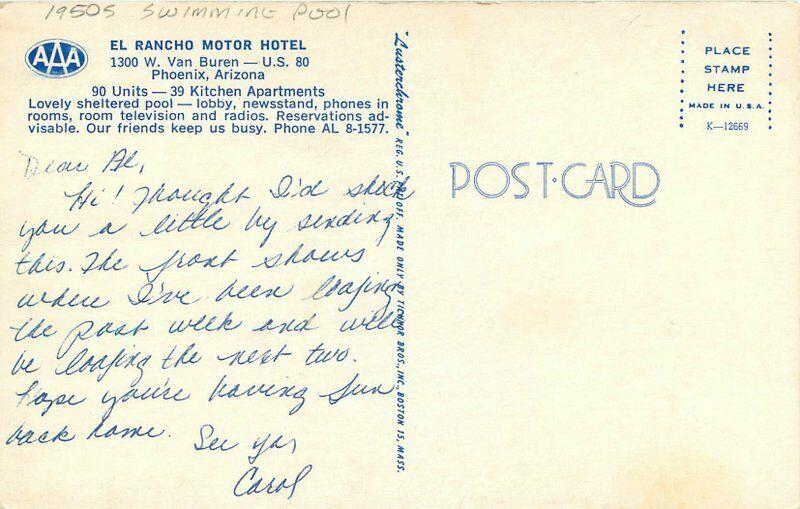 1950S SWIMMING POOL
AAA
EL RANCHO MOTOR HOTEL
1300 W. Van Buren — U.S. 80
Phoenix, Arizona
90 Units — 39 Kitchen Apartments
Lovely sheltered pool — lobby, newsstand, phones in
rooms, room television and radios. Reservations ad-
visable. Our friends keep us busy. Phone AL 8-1577.
Dear Al,
Hi! Thought I'd shock
you a little by sending
this. The front shows
where I've been loafing
the past week and will
be loafing the next two.
Hope you're having fun
back home.
See ya,
Carol
"Lusterchrome" REG. U.S. PAT. OFF. MADE ONLY BY TICHNOR BROS., INC., BOSTON 15, MASS.
POST·CARD
PLACE
STAMP
HERE
MADE IN U.S.A.
K—12669